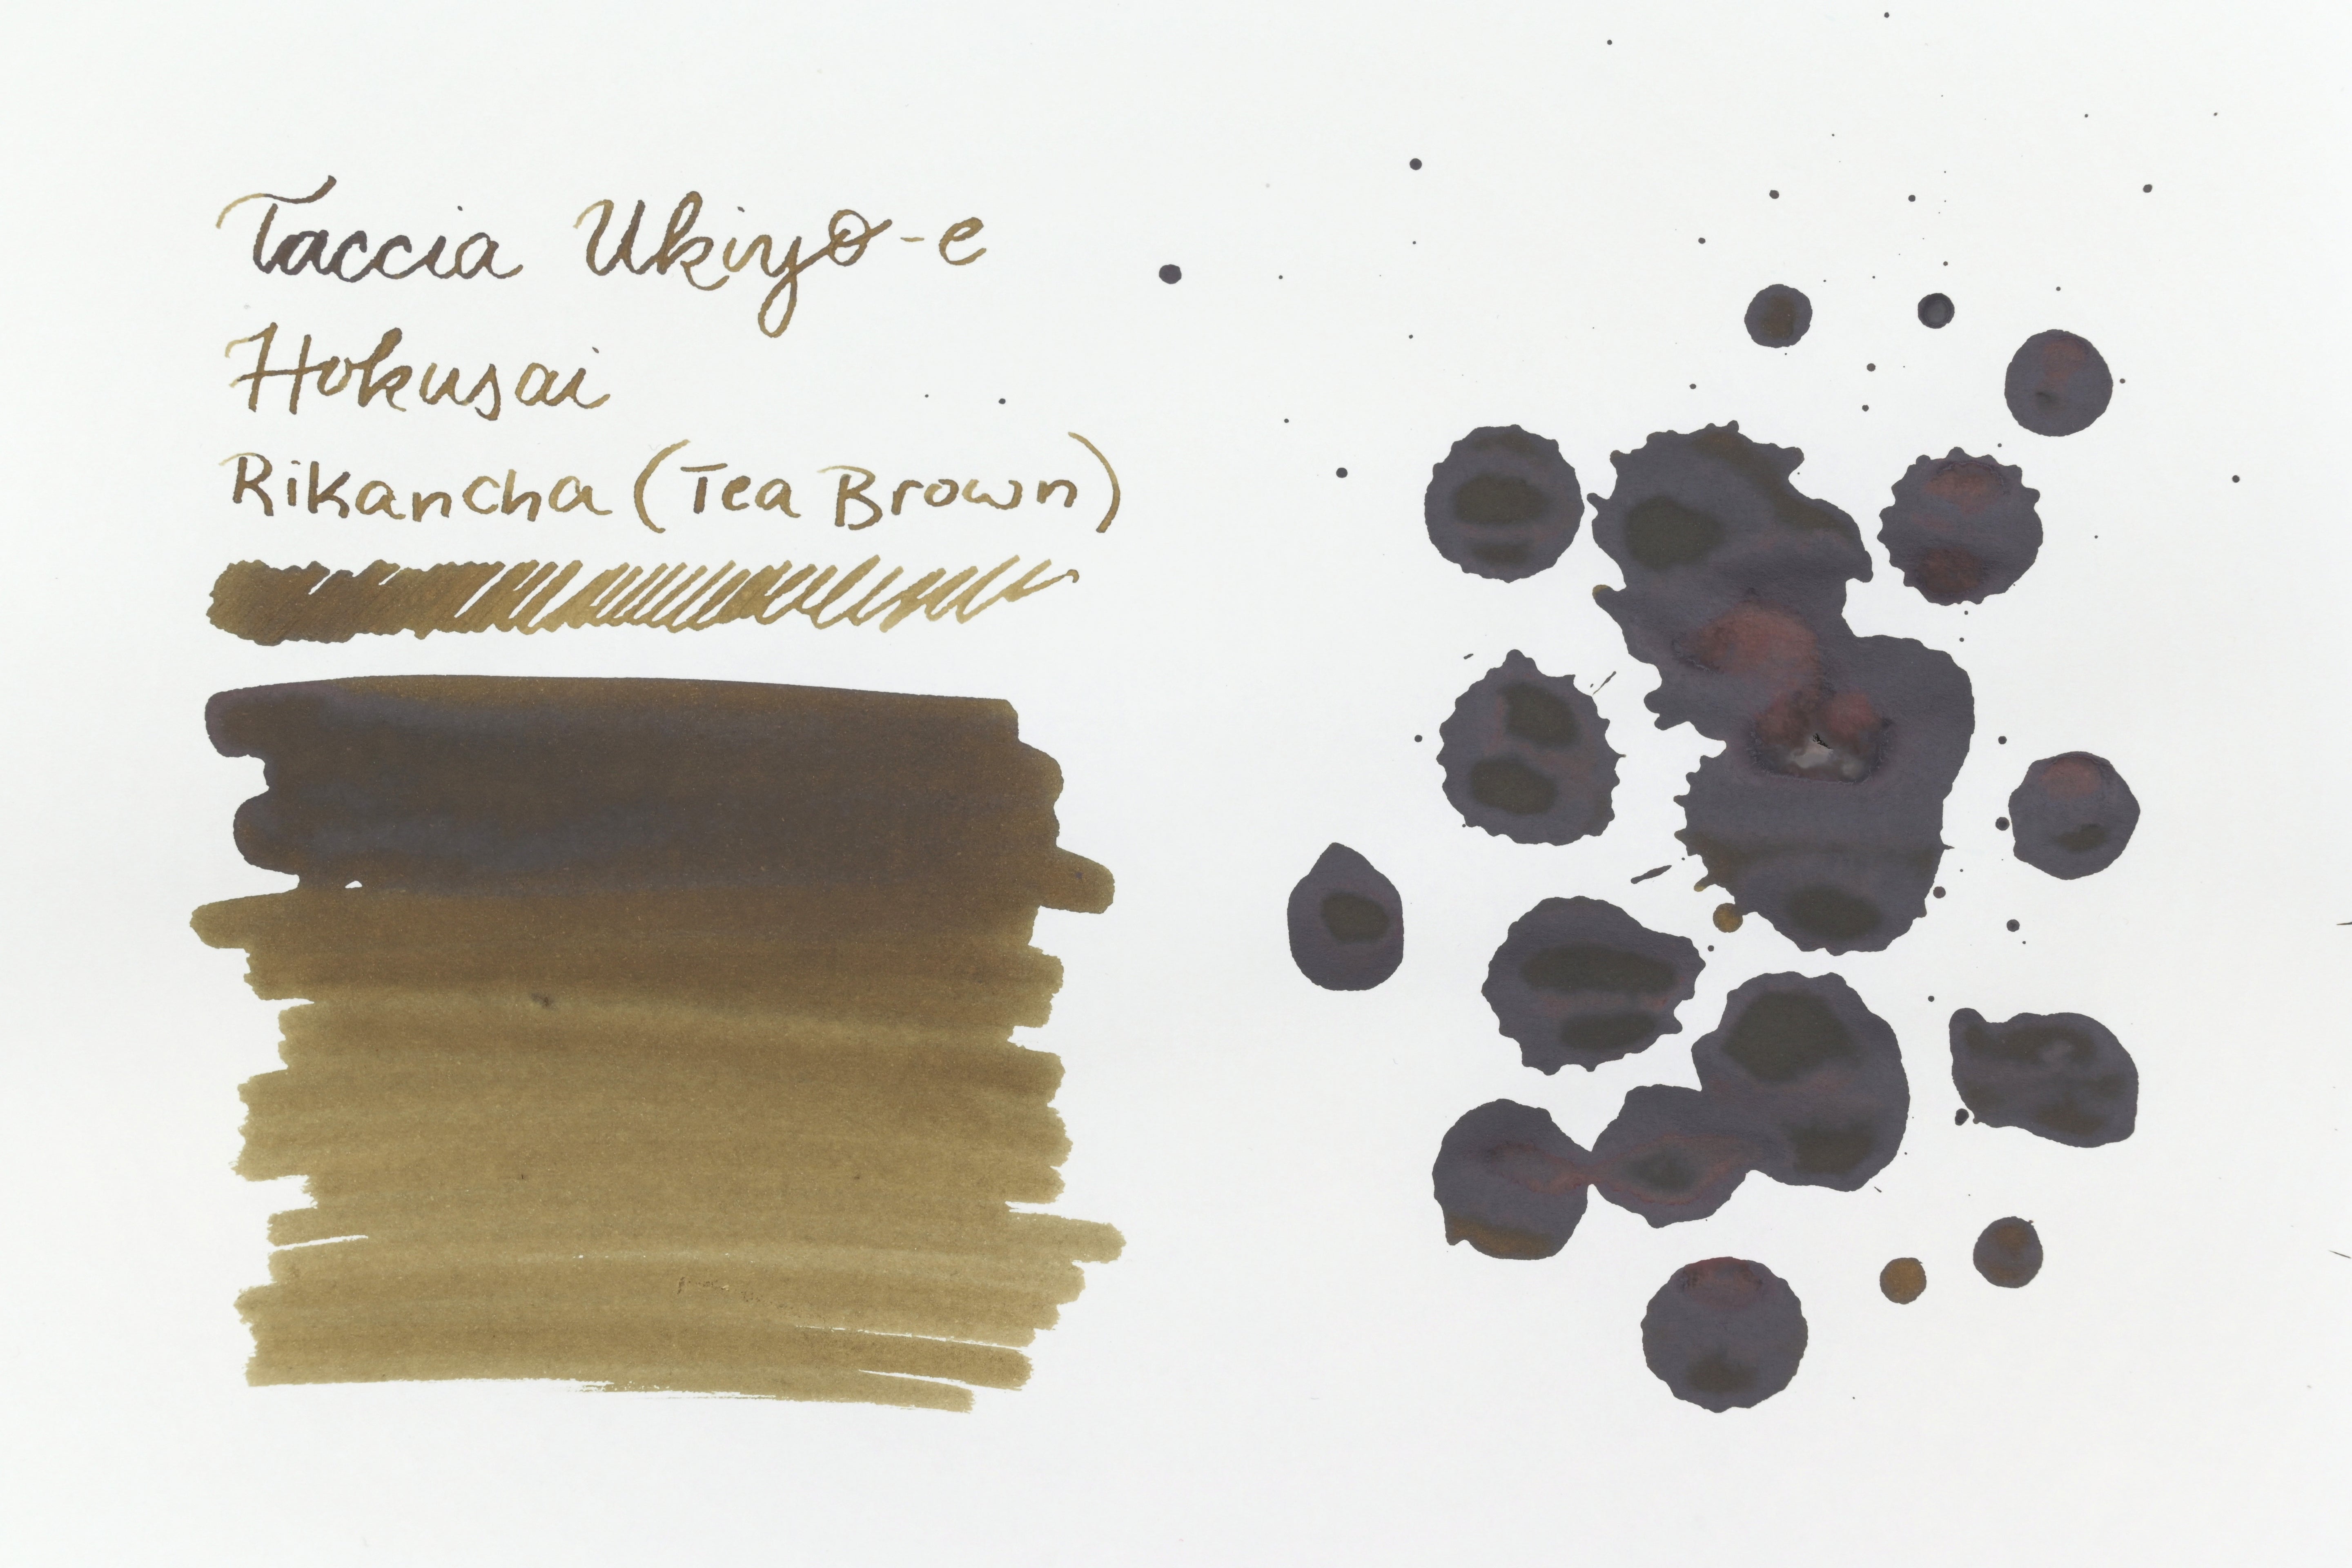 Taccia Ukiyo-e
Hokusai
Rikancha (Tea Brown)